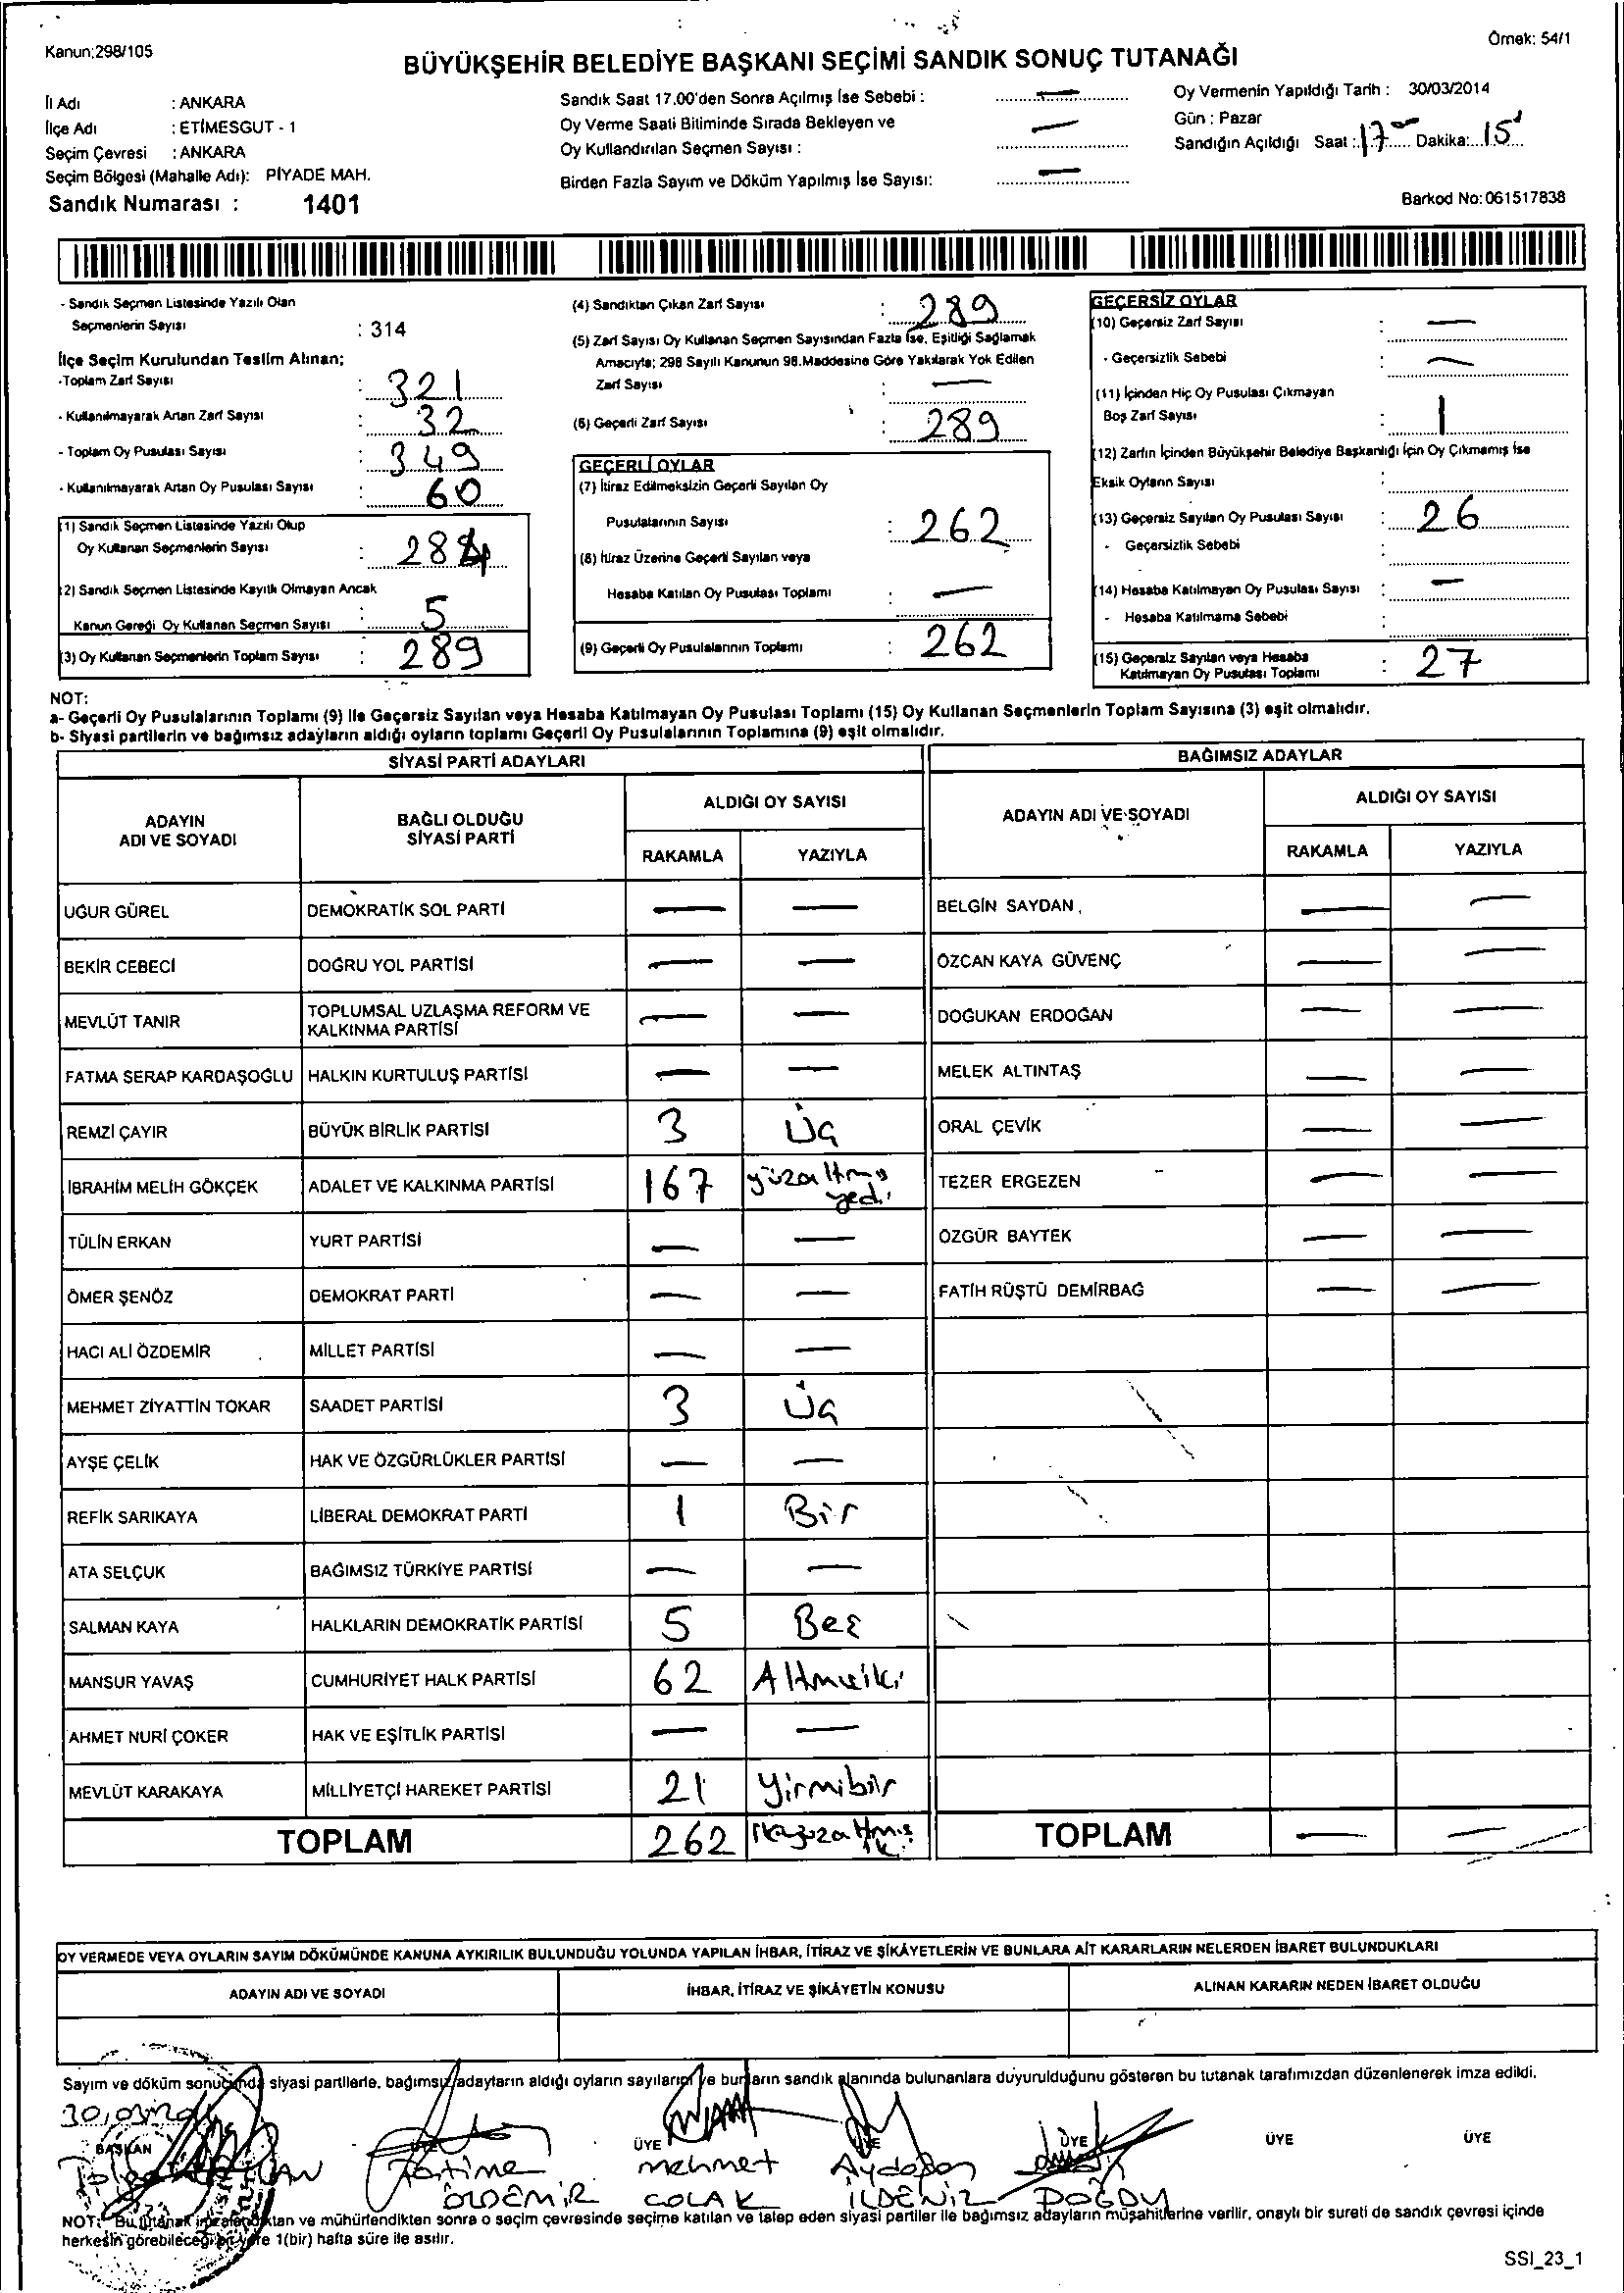 Kanun:298/105
Örnek: 54/1
BÜYÜKŞEHİR BELEDİYE BAŞKANI SEÇİMİ SANDIK SONUÇ TUTANAĞI
İl Adı : ANKARA
İlçe Adı : ETİMESGUT - 1
Seçim Çevresi : ANKARA
Seçim Bölgesi (Mahalle Adı): PİYADE MAH.
Sandık Numarası : 1401
Sandık Saat 17.00'den Sonra Açılmış İse Sebebi : —
Oy Verme Saati Bitiminde Sırada Bekleyen ve
Oy Kullandırılan Seçmen Sayısı : —
Birden Fazla Sayım ve Döküm Yapılmış İse Sayısı: —
Oy Vermenin Yapıldığı Tarih : 30/03/2014
Gün : Pazar
Sandığın Açıldığı Saat : 17 Dakika: 15
Barkod No: 061517838
- Sandık Seçmen Listesinde Yazılı Olan
Seçmenlerin Sayısı : 314
İlçe Seçim Kurulundan Teslim Alınan;
-Toplam Zarf Sayısı : 321
- Kullanılmayarak Artan Zarf Sayısı : 32
- Toplam Oy Pusulası Sayısı : 349
- Kullanılmayarak Artan Oy Pusulası Sayısı : 60
(1) Sandık Seçmen Listesinde Yazılı Olup
Oy Kullanan Seçmenlerin Sayısı : 284
(2) Sandık Seçmen Listesinde Kayıtlı Olmayan Ancak
Kanun Gereği Oy Kullanan Seçmen Sayısı : 5
(3) Oy Kullanan Seçmenlerin Toplam Sayısı : 289
(4) Sandıktan Çıkan Zarf Sayısı : 289
(5) Zarf Sayısı Oy Kullanan Seçmen Sayısından Fazla İse, Eşitliği Sağlamak
Amacıyla; 298 Sayılı Kanunun 98.Maddesine Göre Yakılarak Yok Edilen
Zarf Sayısı : —
(6) Geçerli Zarf Sayısı : 289
GEÇERLİ OYLAR
(7) İtiraz Edilmeksizin Geçerli Sayılan Oy
Pusulalarının Sayısı : 262
(8) İtiraz Üzerine Geçerli Sayılan veya
Hesaba Katılan Oy Pusulası Toplamı : —
(9) Geçerli Oy Pusulalarının Toplamı : 262
GEÇERSİZ OYLAR
(10) Geçersiz Zarf Sayısı : —
- Geçersizlik Sebebi : —
(11) İçinden Hiç Oy Pusulası Çıkmayan
Boş Zarf Sayısı : 1
(12) Zarfın İçinden Büyükşehir Belediye Başkanlığı İçin Oy Çıkmamış İse
Eksik Oyların Sayısı :
(13) Geçersiz Sayılan Oy Pusulası Sayısı : 26
- Geçersizlik Sebebi :
(14) Hesaba Katılmayan Oy Pusulası Sayısı : —
- Hesaba Katılmama Sebebi :
(15) Geçersiz Sayılan veya Hesaba
Katılmayan Oy Pusulası Toplamı : 27
NOT:
a- Geçerli Oy Pusulalarının Toplamı (9) İle Geçersiz Sayılan veya Hesaba Katılmayan Oy Pusulası Toplamı (15) Oy Kullanan Seçmenlerin Toplam Sayısına (3) eşit olmalıdır.
b- Siyasi partilerin ve bağımsız adayların aldığı oyların toplamı Geçerli Oy Pusulalarının Toplamına (9) eşit olmalıdır.
SİYASİ PARTİ ADAYLARI
ADAYIN ADI VE SOYADI BAĞLI OLDUĞU SİYASİ PARTİ ALDIĞI OY SAYISI
RAKAMLA YAZIYLA
UĞUR GÜREL DEMOKRATİK SOL PARTİ — —
BEKİR CEBECİ DOĞRU YOL PARTİSİ — —
MEVLÜT TANIR TOPLUMSAL UZLAŞMA REFORM VE KALKINMA PARTİSİ — —
FATMA SERAP KARDAŞOĞLU HALKIN KURTULUŞ PARTİSİ — —
REMZİ ÇAYIR BÜYÜK BİRLİK PARTİSİ 3 Üç
İBRAHİM MELİH GÖKÇEK ADALET VE KALKINMA PARTİSİ 167 yüzaltmış yedi
TÜLİN ERKAN YURT PARTİSİ — —
ÖMER ŞENÖZ DEMOKRAT PARTİ — —
HACI ALİ ÖZDEMİR MİLLET PARTİSİ — —
MEHMET ZİYATTİN TOKAR SAADET PARTİSİ 3 Üç
AYŞE ÇELİK HAK VE ÖZGÜRLÜKLER PARTİSİ — —
REFİK SARIKAYA LİBERAL DEMOKRAT PARTİ 1 Bir
ATA SELÇUK BAĞIMSIZ TÜRKİYE PARTİSİ — —
SALMAN KAYA HALKLARIN DEMOKRATİK PARTİSİ 5 Beş
MANSUR YAVAŞ CUMHURİYET HALK PARTİSİ 62 Altmışiki
AHMET NURİ ÇOKER HAK VE EŞİTLİK PARTİSİ — —
MEVLÜT KARAKAYA MİLLİYETÇİ HAREKET PARTİSİ 21 Yirmibir
TOPLAM 262 İkiyüzaltmış iki
BAĞIMSIZ ADAYLAR
ADAYIN ADI VE SOYADI ALDIĞI OY SAYISI
RAKAMLA YAZIYLA
BELGİN SAYDAN — —
ÖZCAN KAYA GÜVENÇ — —
DOĞUKAN ERDOĞAN — —
MELEK ALTINTAŞ — —
ORAL ÇEVİK — —
TEZER ERGEZEN — —
ÖZGÜR BAYTEK — —
FATİH RÜŞTÜ DEMİRBAĞ — —
TOPLAM — —
OY VERMEDE VEYA OYLARIN SAYIM DÖKÜMÜNDE KANUNA AYKIRILIK BULUNDUĞU YOLUNDA YAPILAN İHBAR, İTİRAZ VE ŞİKÂYETLERİN VE BUNLARA AİT KARARLARIN NELERDEN İBARET BULUNDUKLARI
ADAYIN ADI VE SOYADI İHBAR, İTİRAZ VE ŞİKÂYETİN KONUSU ALINAN KARARIN NEDEN İBARET OLDUĞU
Sayım ve döküm sonucunda siyasi partilerle, bağımsız adayların aldığı oyların sayılarını ve bunların sandık alanında bulunanlara duyurulduğunu gösteren bu tutanak tarafımızdan düzenlenerek imza edildi.
BAŞKAN ÜYE ÜYE ÜYE ÜYE ÜYE
Fatime mehmet Aydoğan
ÖZDEMİR COLAK İLDENİZ DOĞDU
NOT: Bu tutanak imzalandıktan ve mühürlendikten sonra o seçim çevresinde seçime katılan ve talep eden siyasi partiler ile bağımsız adayların müşahitlerine verilir, onaylı bir sureti de sandık çevresi içinde
herkesin görebileceği bir yere 1(bir) hafta süre ile asılır.
SSI_23_1